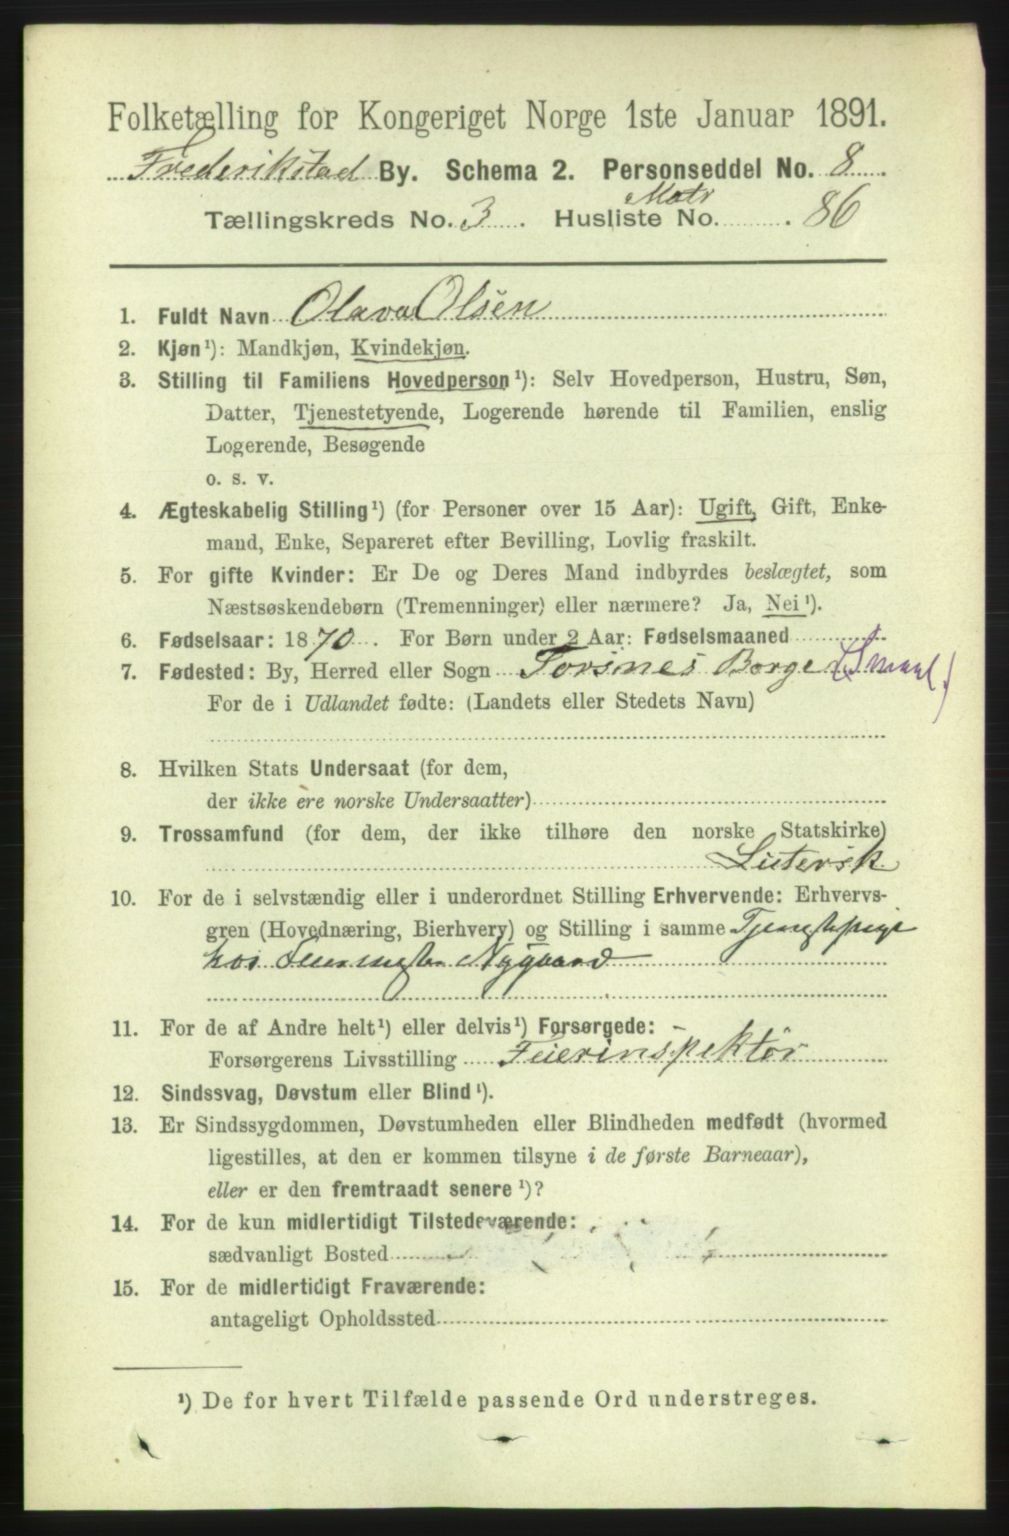 Folketælling for Kongeriget Norge 1ste Januar 1891.
Frederikstad By. Schema 2. Personseddel No. 8.
Matr
Tællingskreds No. 3. Husliste No. 86
1. Fuldt Navn Olava Olsen
2. Kjøn¹): Mandkjøn, Kvindekjøn.
3. Stilling til Familiens Hovedperson¹): Selv Hovedperson, Hustru, Søn,
Datter, Tjenestetyende, Logerende hørende til Familien, enslig
Logerende, Besøgende
o. s. v.
4. Ægteskabelig Stilling¹) (for Personer over 15 Aar): Ugift, Gift, Enke-
mand, Enke, Separeret efter Bevilling, Lovlig fraskilt.
5. For gifte Kvinder: Er De og Deres Mand indbyrdes beslægtet, som
Næstsøskendebørn (Tremenninger) eller nærmere? Ja, Nei¹).
6. Fødselsaar: 1870. For Børn under 2 Aar: Fødselsmaaned
7. Fødested: By, Herred eller Sogn Torsnes Borge (Smaal.)
For de i Udlandet fødte: (Landets eller Stedets Navn)
8. Hvilken Stats Undersaat (for dem,
der ikke ere norske Undersaatter)
9. Trossamfund (for dem, der ikke tilhøre den norske Statskirke)
Lutersk
10. For de i selvstændig eller i underordnet Stilling Erhvervende: Erhvervs-
gren (Hovednæring, Bierhverv) og Stilling i samme Tjenestepige
hos Feiermester Nygaard
11. For de af Andre helt¹) eller delvis¹) Forsørgede:
Forsørgerens Livsstilling Feierinspektør
12. Sindssvag, Døvstum eller Blind¹).
13. Er Sindssygdommen, Døvstumheden eller Blindheden medfødt (hvormed
ligestilles, at den er kommen tilsyne i de første Barneaar),
eller er den fremtraadt senere¹)?
14. For de kun midlertidigt Tilstedeværende:
sædvanligt Bosted
15. For de midlertidigt Fraværende:
antageligt Opholdssted
¹) De for hvert Tilfælde passende Ord understreges.